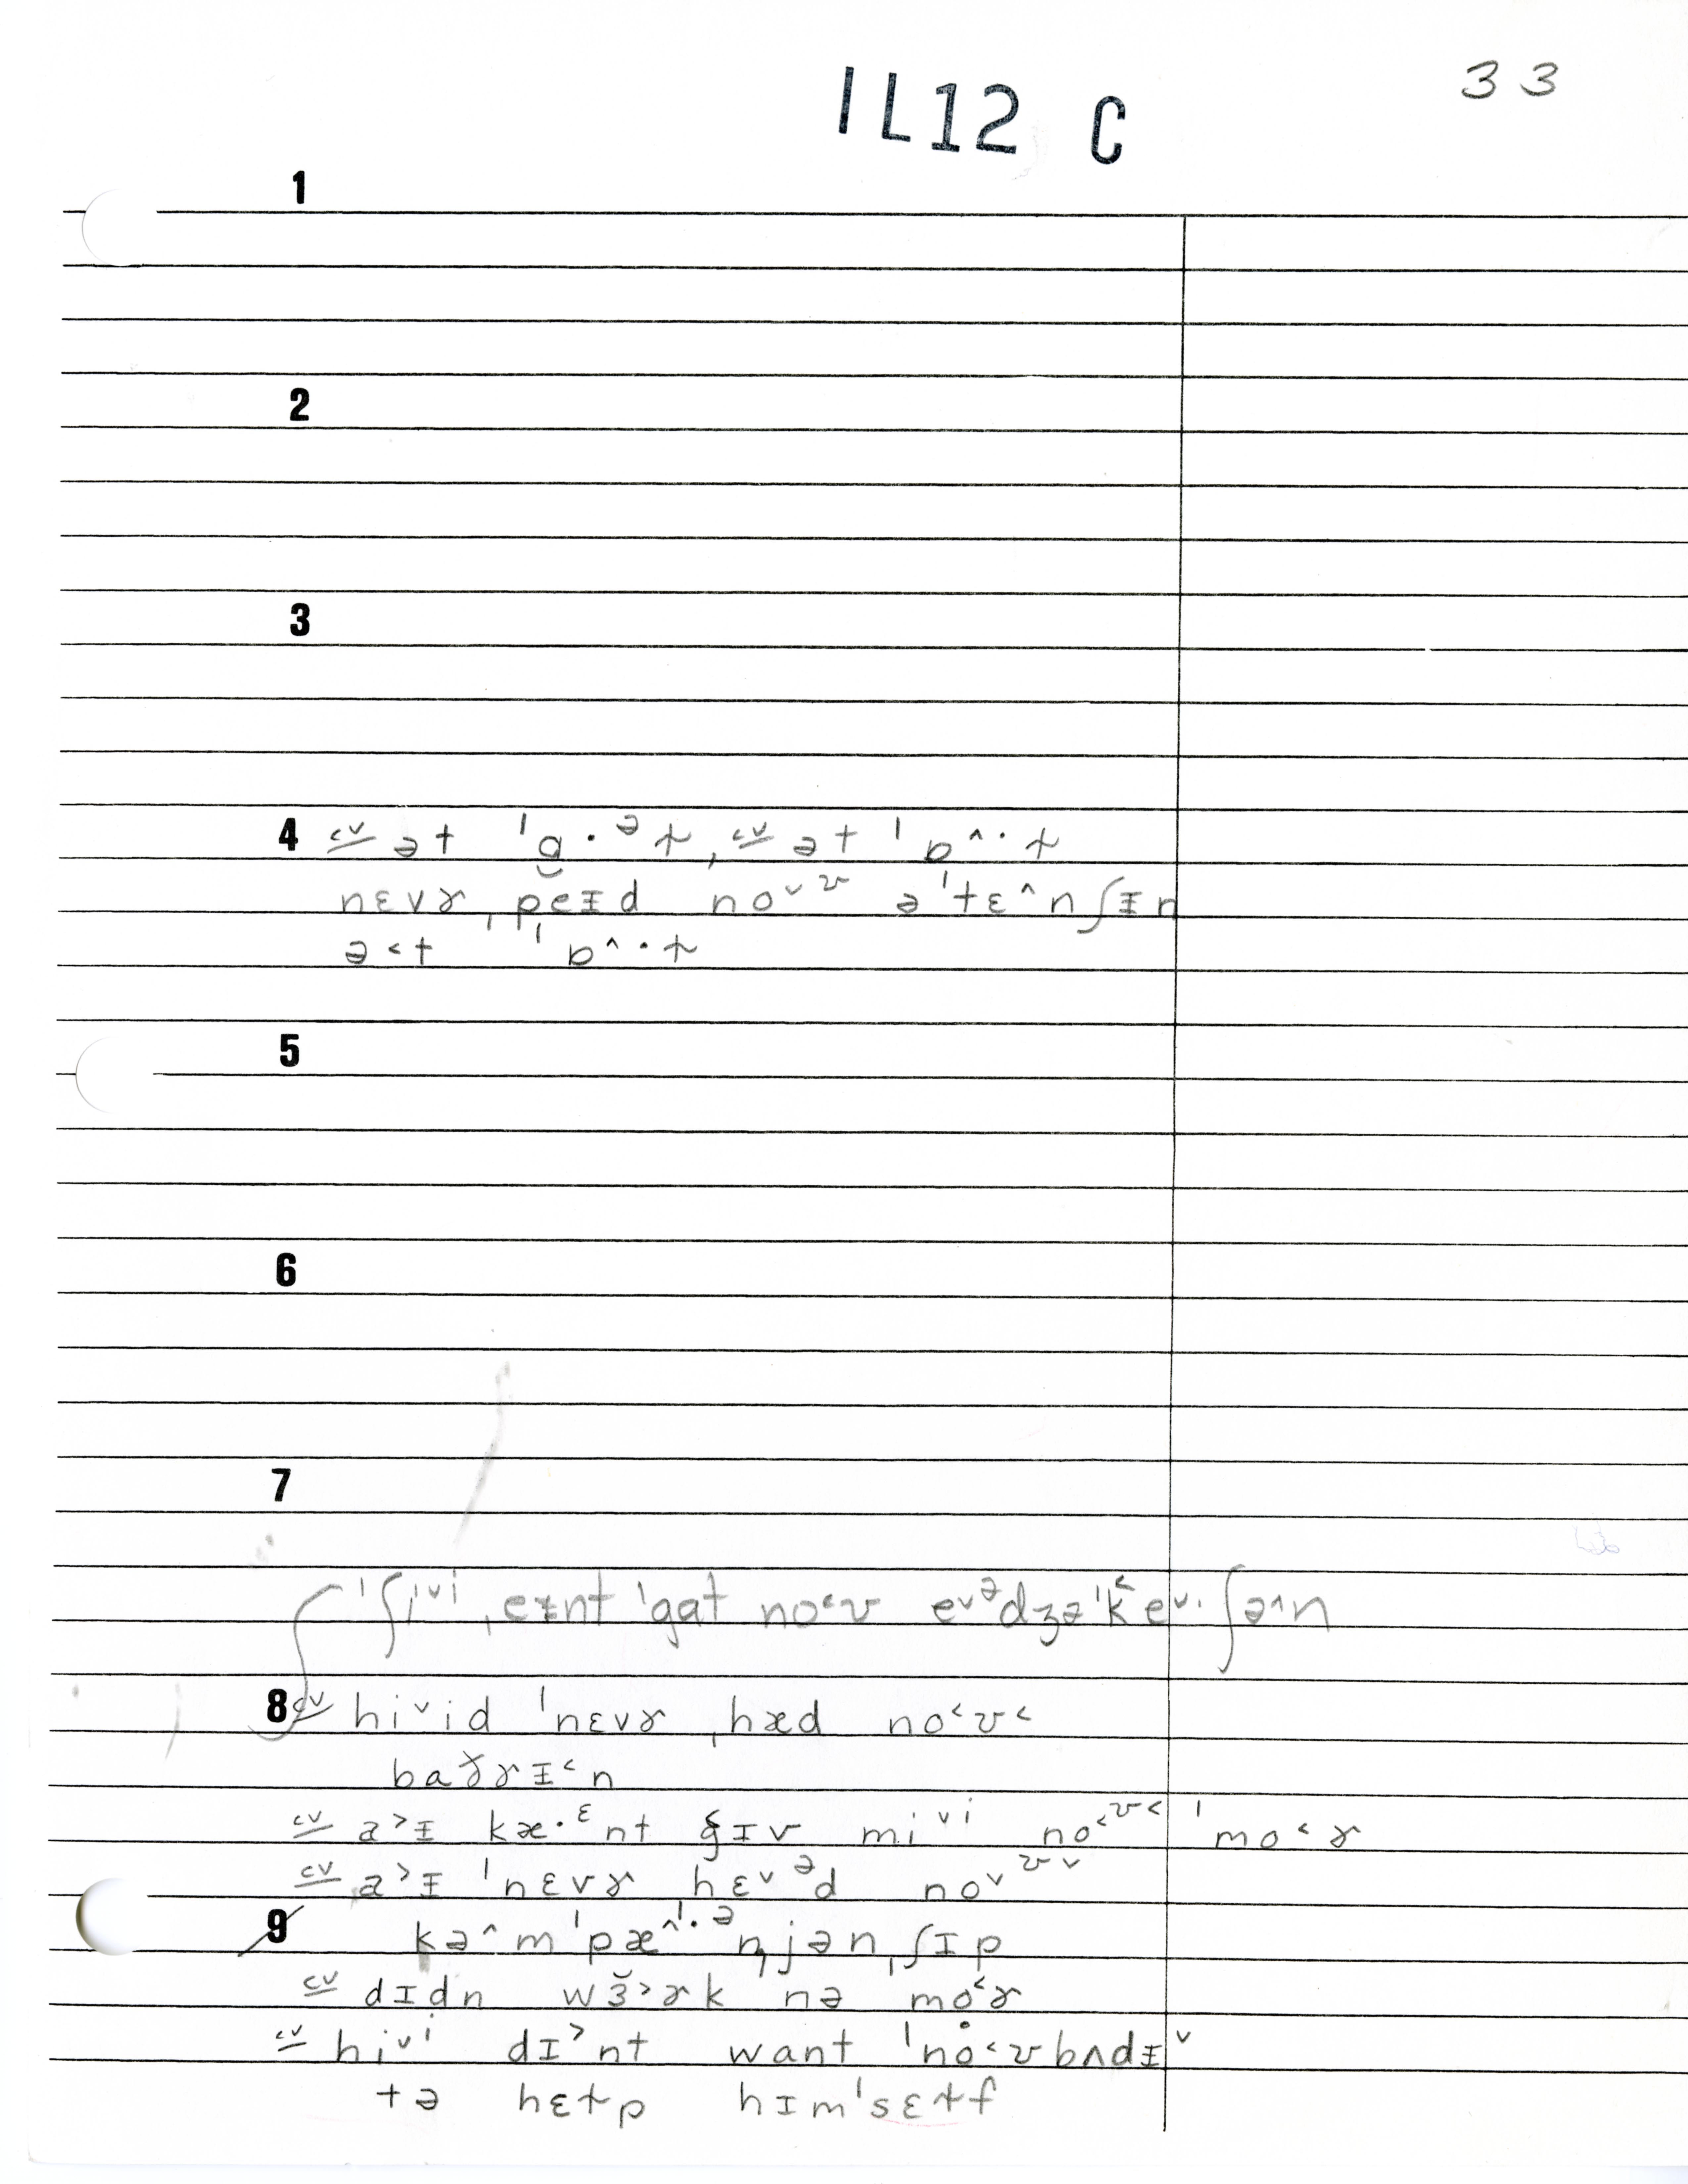 33
IL12 C
1
2
3
4 cv ət ˈɒ̯·ᵊɫ, cv ət ˈɒ^·ɫ
nɛvɚ ˌpeɪd noˇᶷ əˈtɛ^nʃɪn
ə<t ˈɒ^·ɫ
5
6
7
ˈʃiˇi ˌeɪnt ˈgat no<ʊ eˇᵊdʒəˈk<eˇ·ʃə^n
8 cv hiˇid ˈnɛvɚ ˌhæd no<ʊ<
baɚ̆ɚɪ<n
cv a>ɪ kæ·ᵋnt gɪv miˇⁱ no<ᶷ< ˈmo<ɚ
cv a>ɪ ˈnɛvɚ ˌhɛˇᵊd noˇᶷˇ
9 kə^mˈpæ^ˈ·ᵊn̩jən ˌʃɪp
cv dɪdn wɜ̆>ɚk nə mo<ɚ
cv hiˇⁱ dɪ>nt want ˈno<ʊbʌdɪˇ
tə hɛɫp hɪmˈsɛɫf